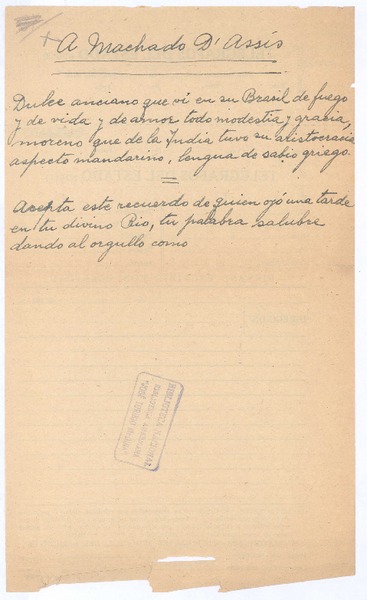 A Machado D'Assís
Dulce anciano que ví en su Brasil de fuego
y de vida y de amor todo modestia y gracia,
moreno que de la India tuvo su aristocracia
aspecto mandarino, lengua de sabio griego.
Acepta este recuerdo de quien ojó una tarde
en tu divino Rio, tu palabra salubre
dando al orgullo como
BIBLIOTECA NACIONAL
BIBLIOTECA AMERICANA
"JOSÉ TORIBIO MEDINA"